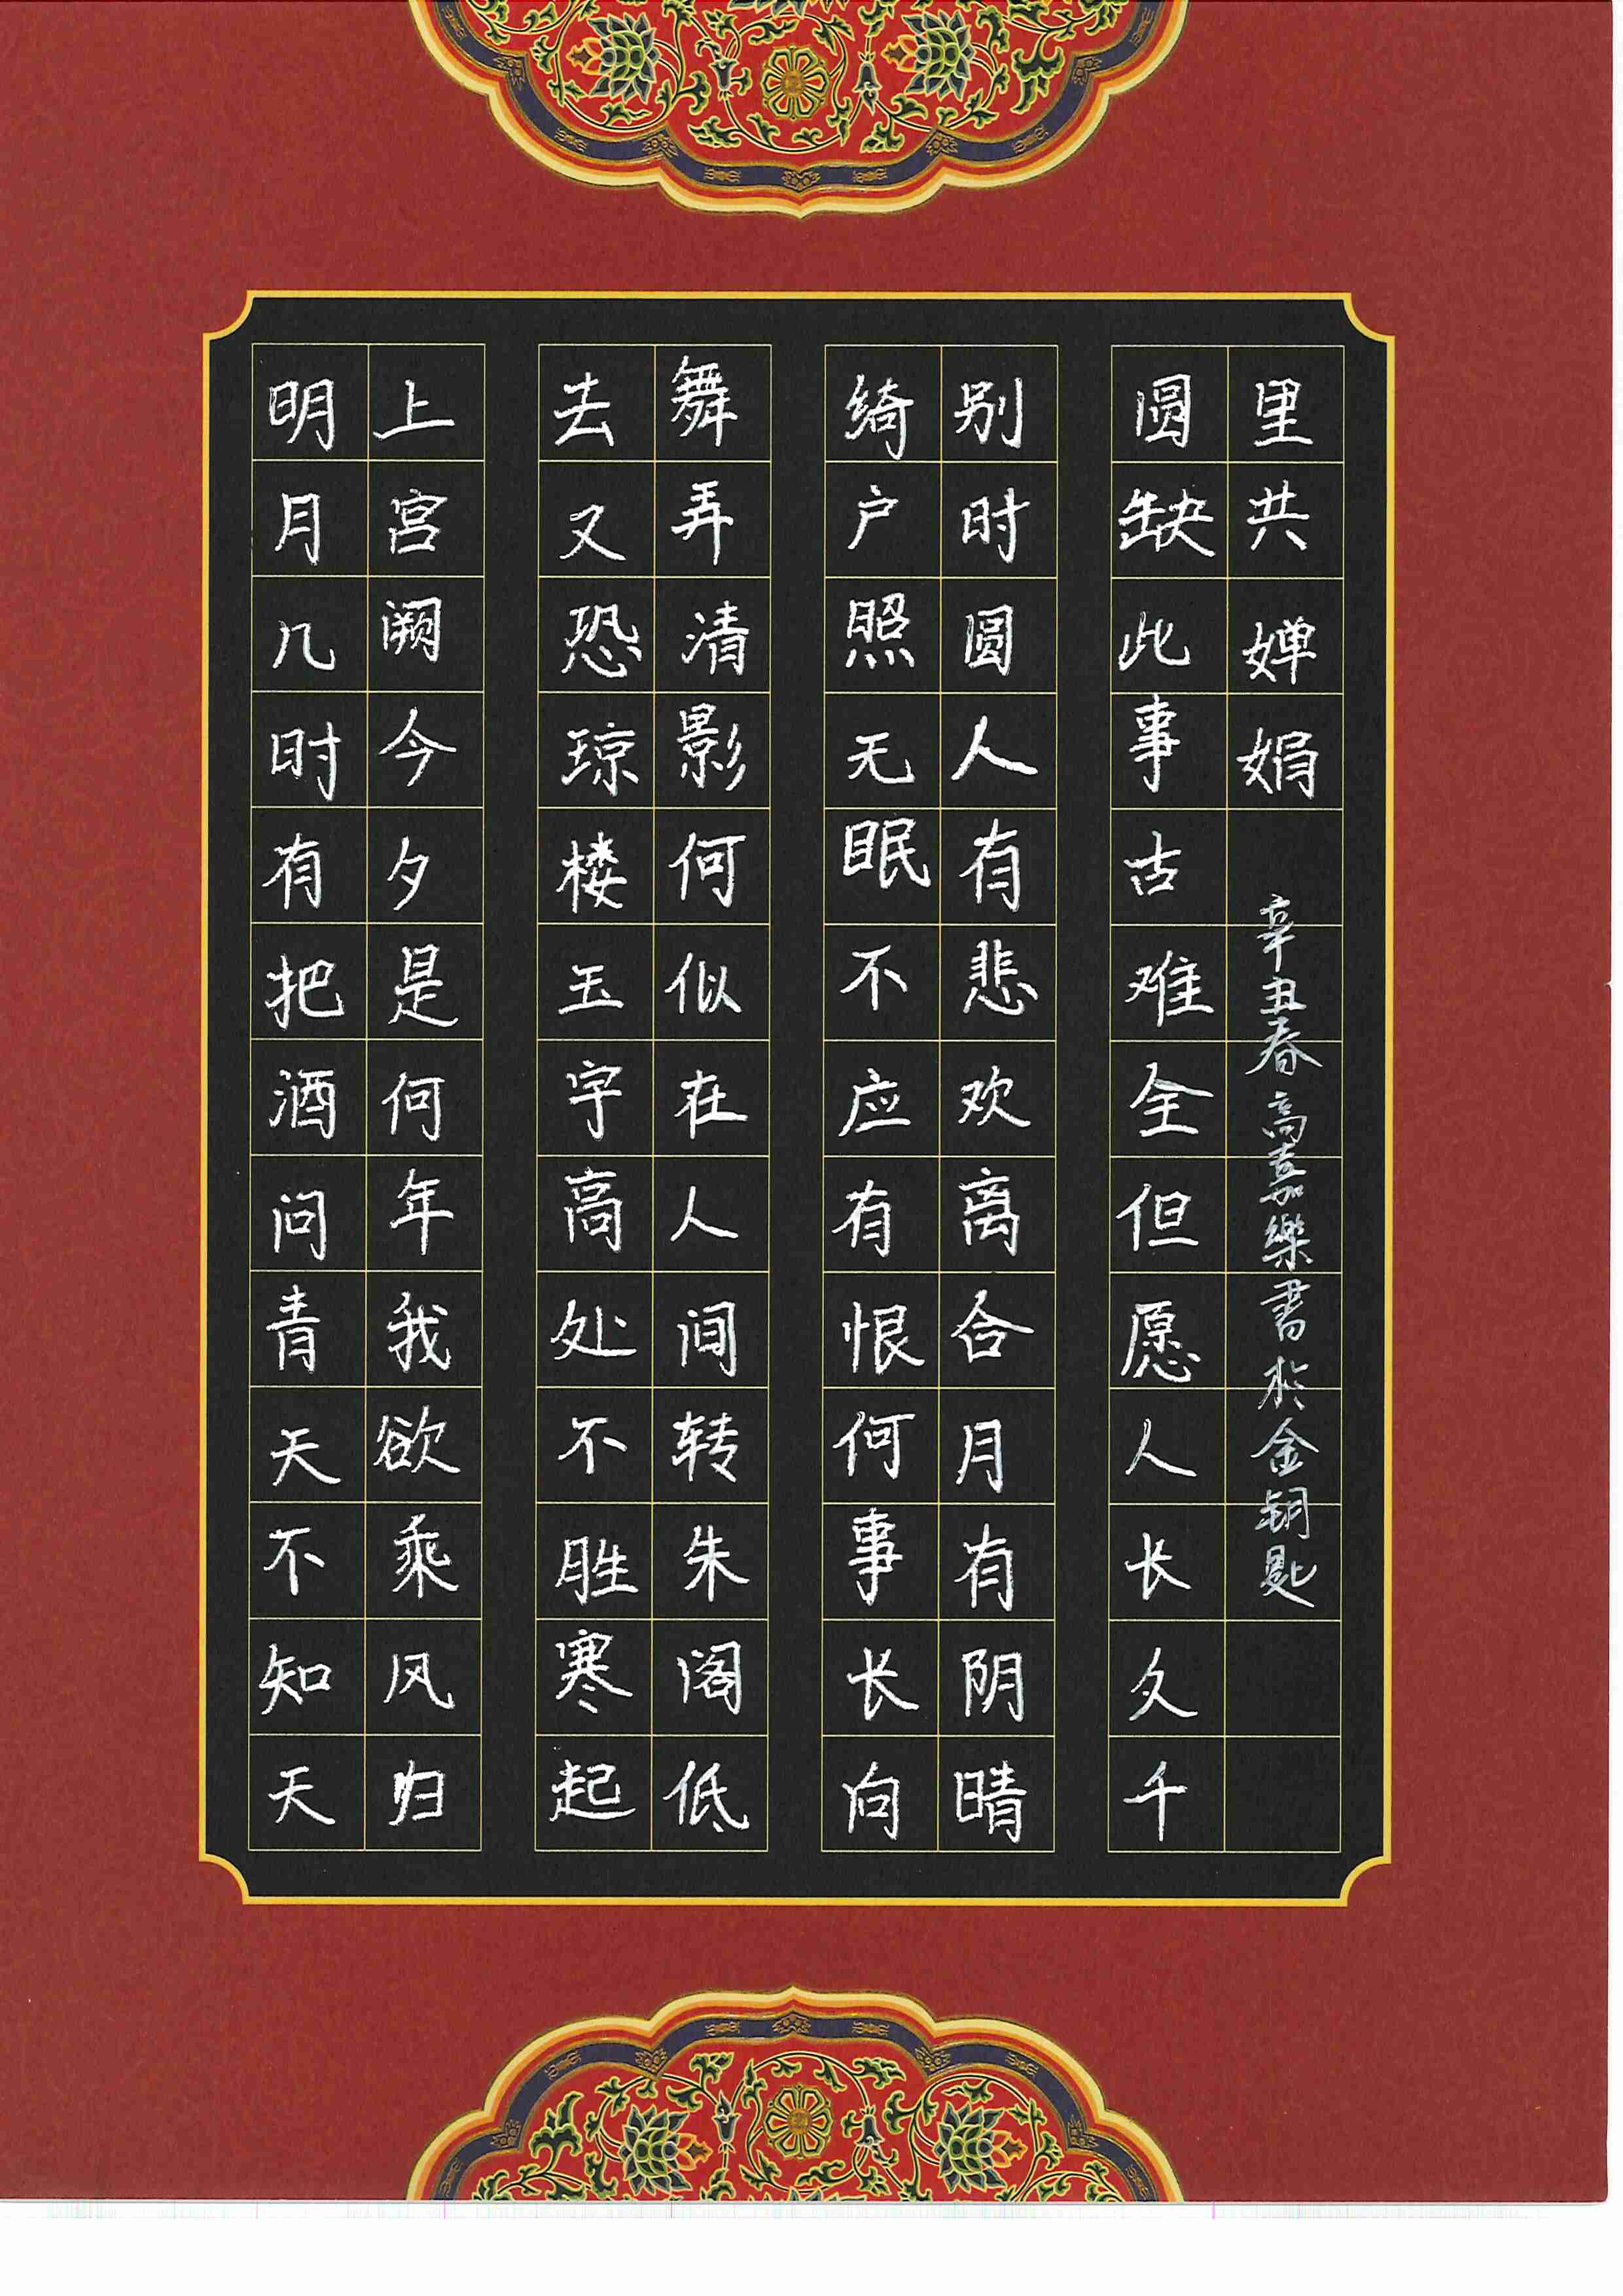 明月几时有把酒问青天不知天
上宫阙今夕是何年我欲乘风归
去又恐琼楼玉宇高处不胜寒起
舞弄清影何似在人间转朱阁低
绮户照无眠不应有恨何事长向
别时圆人有悲欢离合月有阴晴
圆缺此事古难全但愿人长久千
里共婵娟
辛丑春高嘉樂書於金钥匙